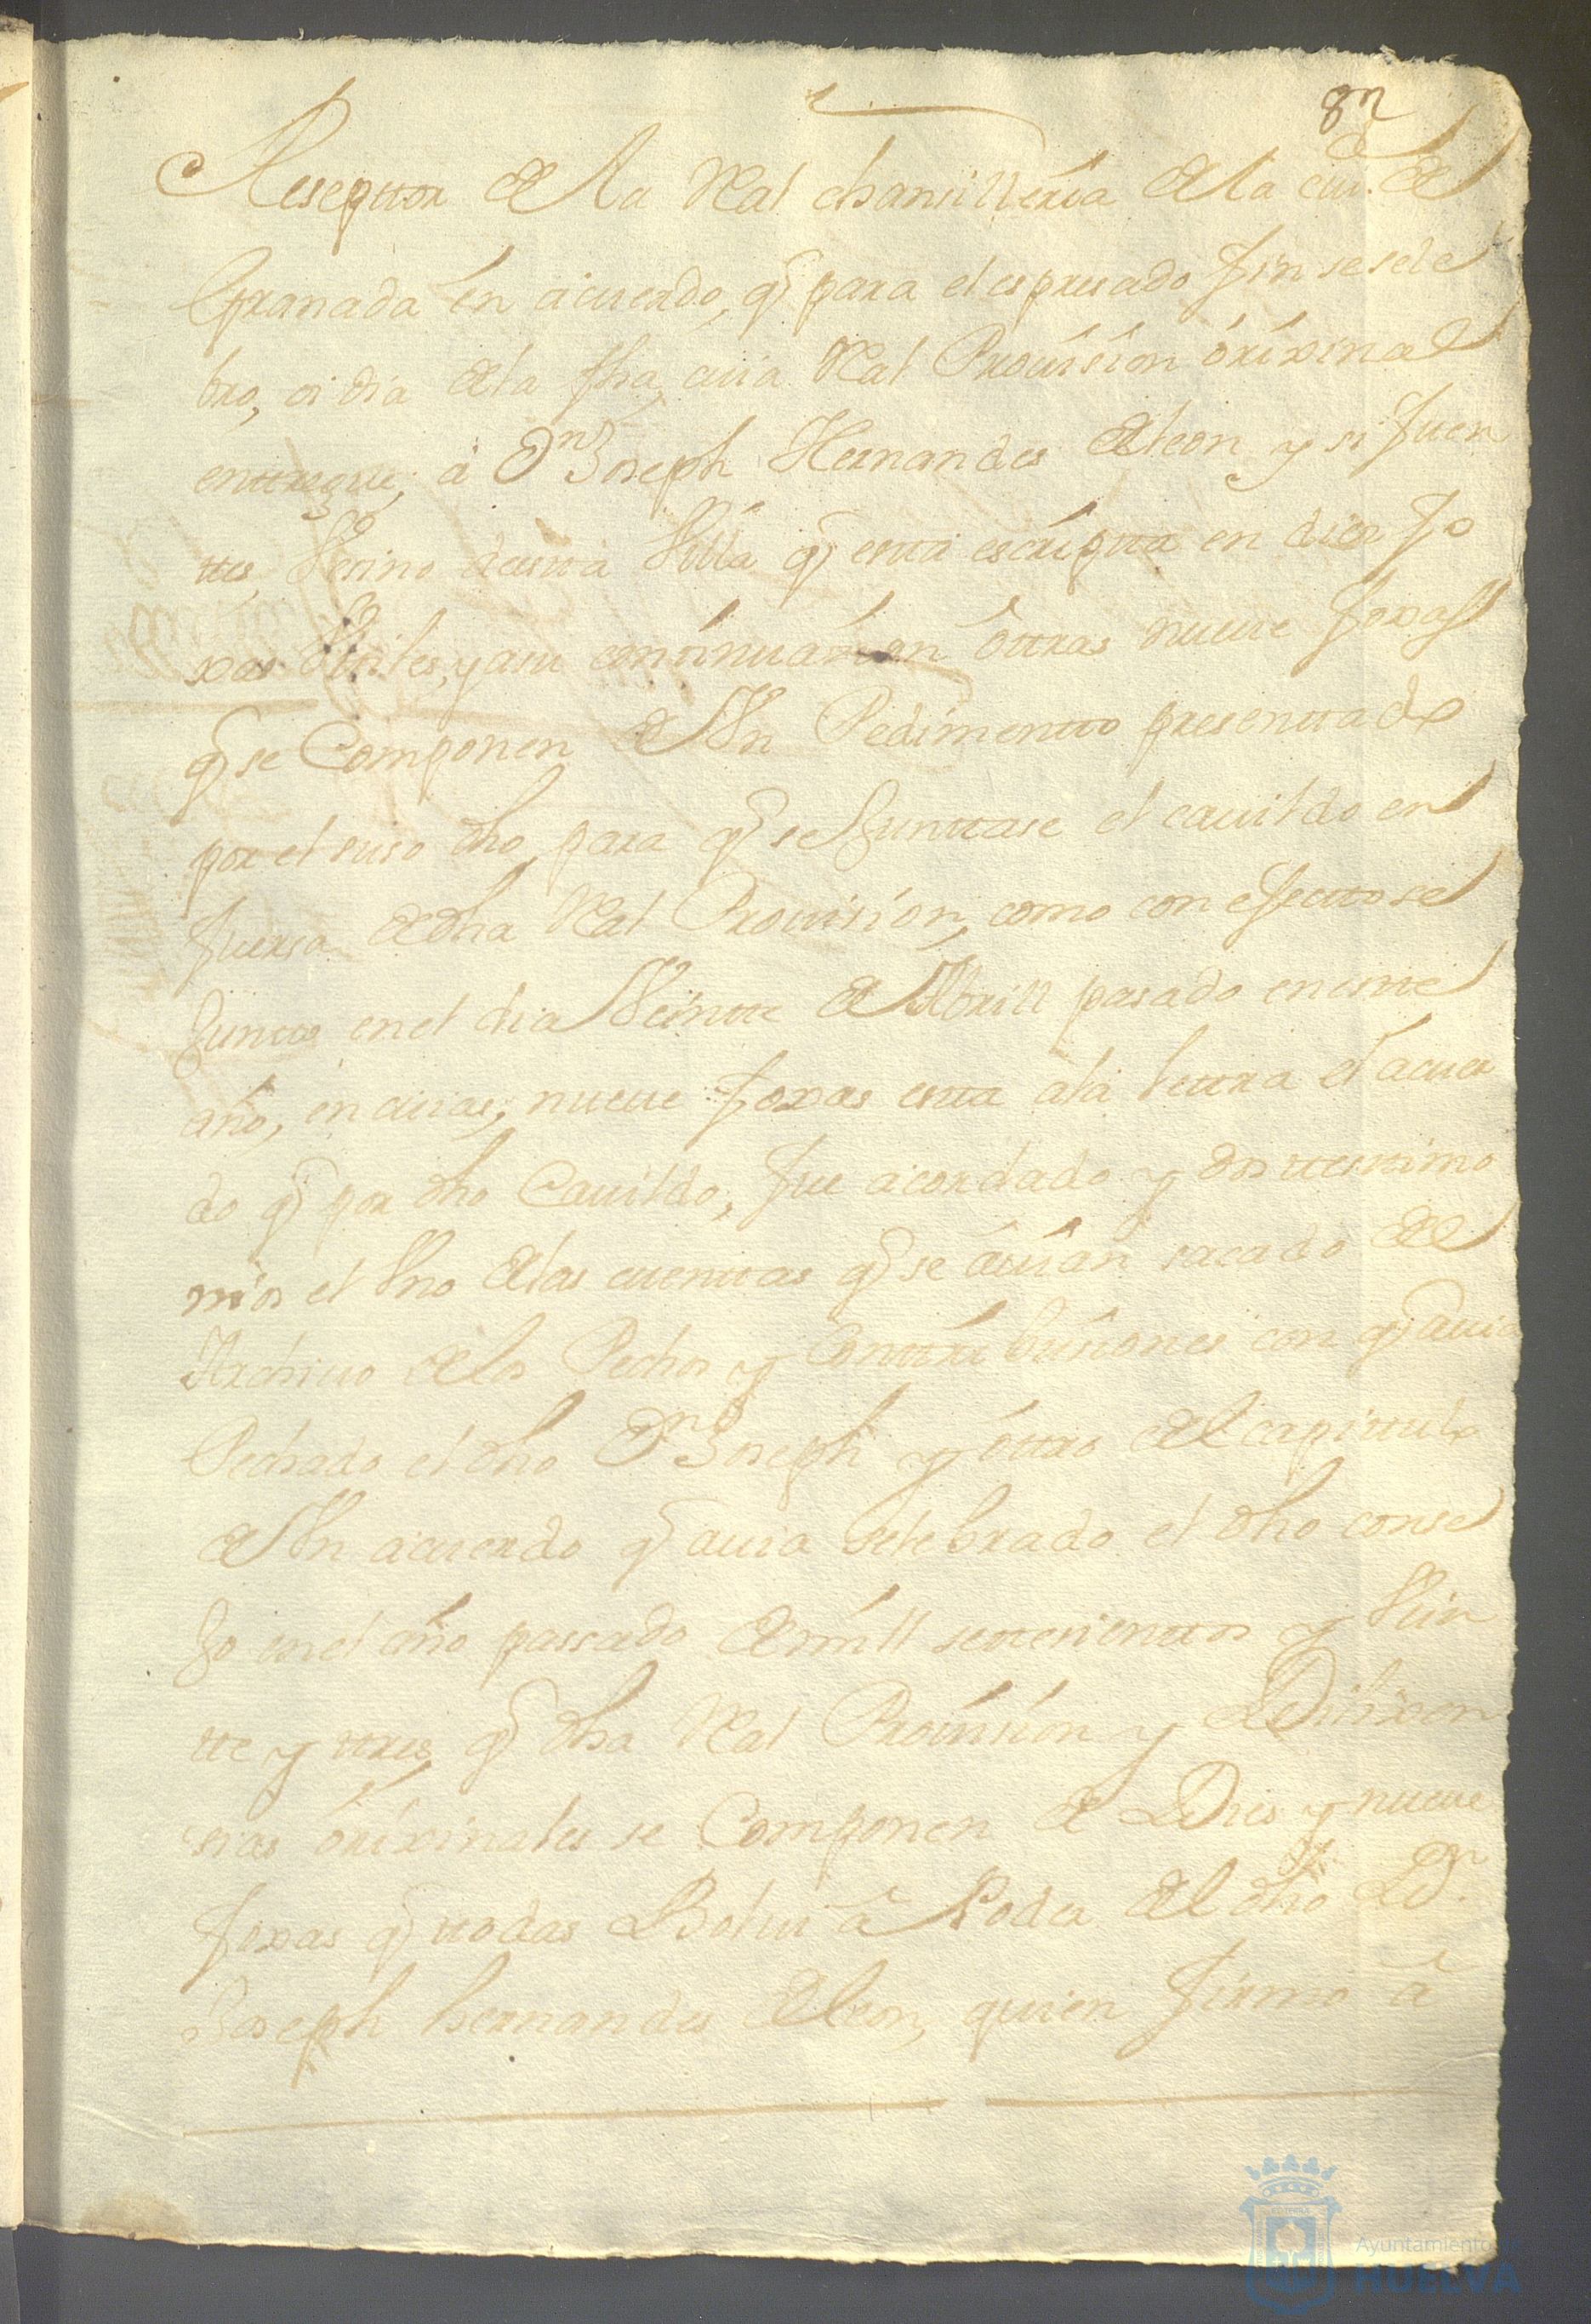 82
Reseptor de la Real chansilleria de la ciud. de
Granada en acuerdo, q̃ para el espresado fin se sele
bro, oi dia de la fha, cuia Real Provision orixinal
entregue, à Dn Joseph Hernandes de leon y si fuen
tes, Vesino de esta Villa q̃ esta escripta en dies fo
xas Utiles, y a su continuasion ottras nueve foxas
q̃ se Componen de Un Pedimento presenttado
por el suso dho, para q̃ se Junttase el cavildo en
fuersa de dha Real Provision, como con efecto se
Junto en el dia Veintte de Abrill pasado en este
año, en cuias, nueve foxas esta a la lettra el acuer
do q̃ por dho Cavildo, fue acordado y dos ttesttimo
nios el Uno de las cuenttas q̃ se avian sacado de
Archivo de los Pechos y Conttribusiones con q̃ avia
Pechado el dho Dn Joseph y ottro del capittulo
de Un acuerdo q̃ avia selebrado el dho conse
Jo en el año passado de mill settesienttos y Vein
tte y ttres, q̃ dha Real Provision y Dilixen
sias orixinales se Componen de Dies y nueve
foxas q̃ ttodas Bolvi à Poder del dho Dn.
Joseph hernandes de leon, quien firmo à
Ayuntamiento de
HUELVA